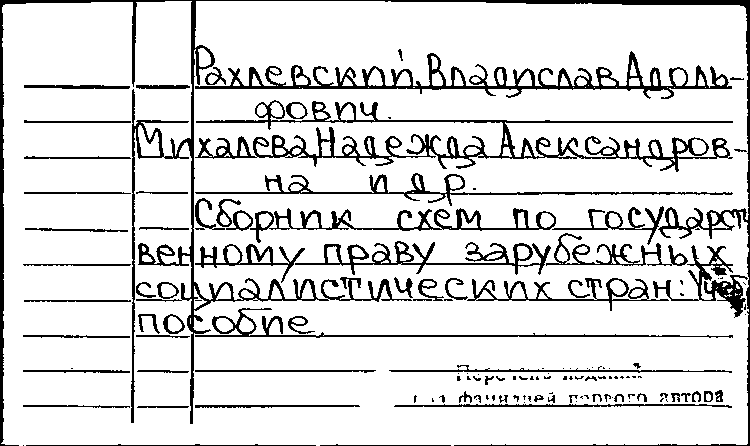 Рахлевский, Владислав Адоль-
фович.
Михалева, Надежда Александров-
на и др.
Сборник схем по государст
венному праву зарубежных
социалистических стран: Учеб
пособие.
Перечень изданий
фамилией первого автора